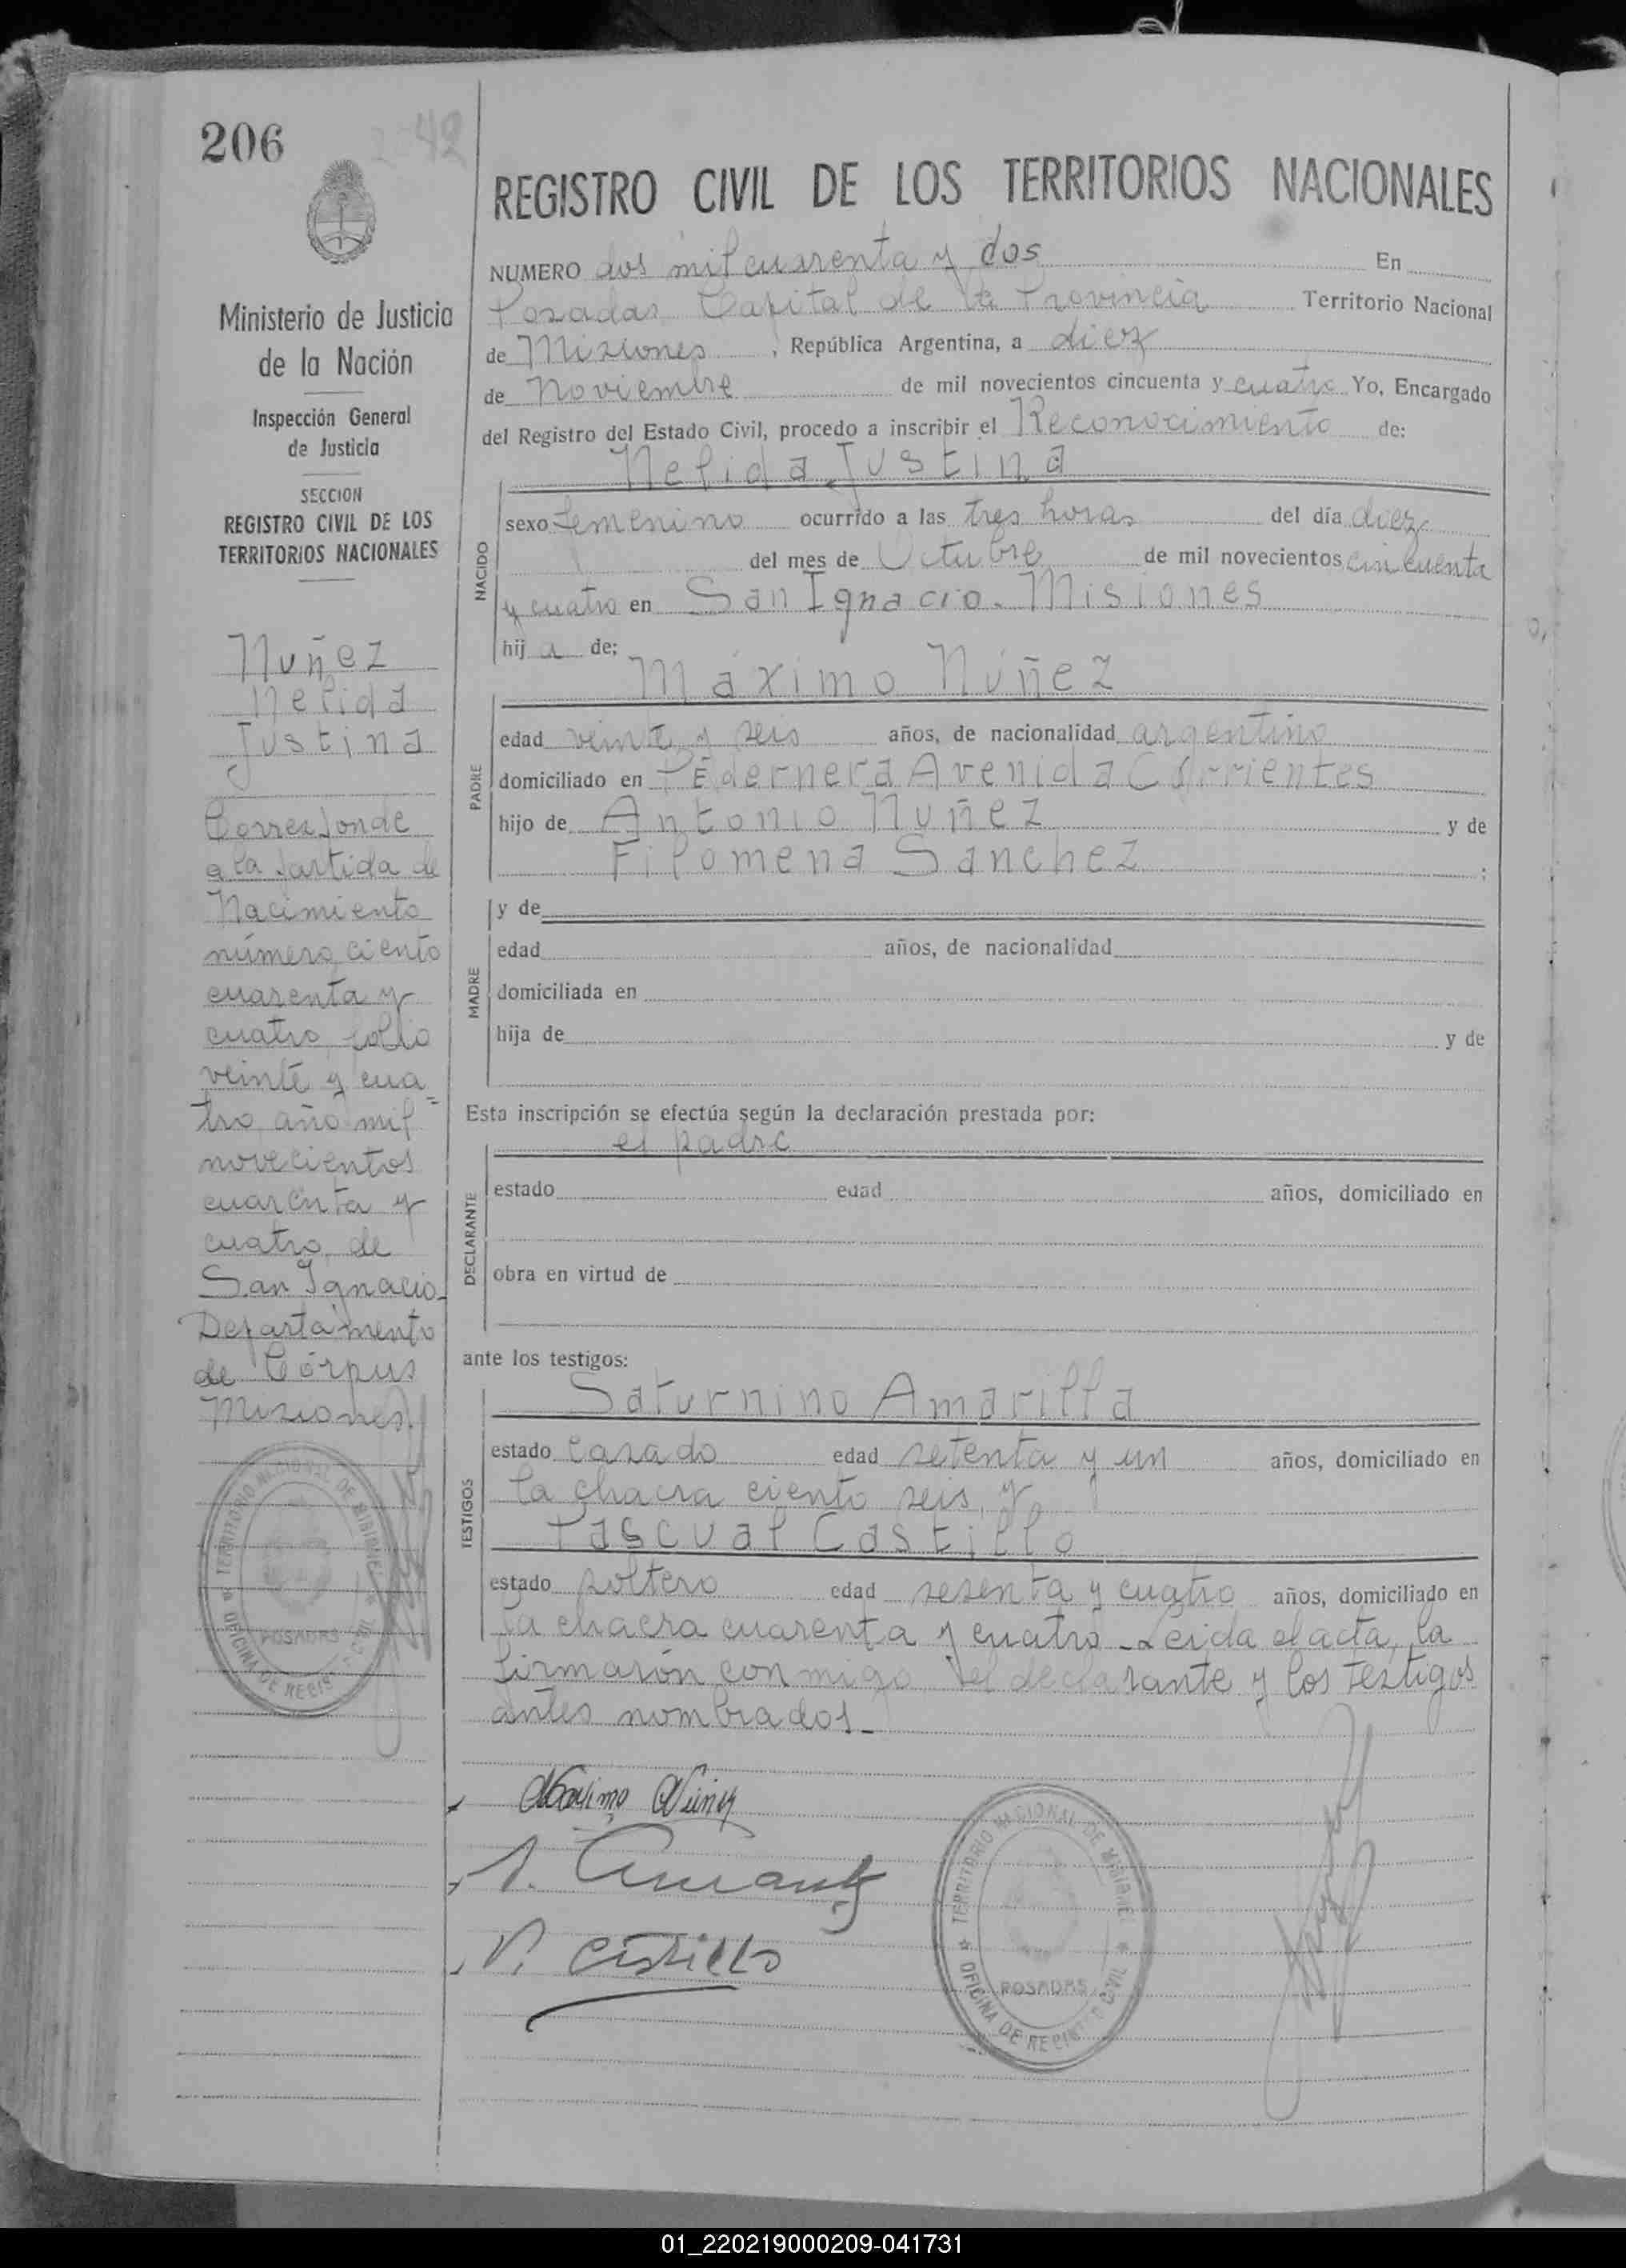 206
2042
REGISTRO CIVIL DE LOS TERRITORIOS NACIONALES
NUMERO dos mil cuarenta y dos En
Posadas Capital de la Provincia Territorio Nacional
de Misiones, República Argentina, a diez
de Noviembre de mil novecientos cincuenta y cuatro Yo, Encargado
del Registro del Estado Civil, procedo a inscribir el Reconocimiento de:
Nelida Justina
NACIDO
sexo femenino ocurrido a las tres horas del día diez
del mes de Octubre de mil novecientos cincuenta
y cuatro en San Ignacio. Misiones
hij a de:
Máximo Núñez
PADRE
edad veinte y seis años, de nacionalidad argentino
domiciliado en Pedernera Avenida Corrientes
hijo de Antonio Nuñez y de
Filomena Sanchez ;
y de
MADRE
edad años, de nacionalidad
domiciliada en
hija de y de
Esta inscripción se efectúa según la declaración prestada por:
el padre
DECLARANTE
estado edad años, domiciliado en
obra en virtud de
ante los testigos:
Saturnino Amarilla
TESTIGOS
estado casado edad setenta y un años, domiciliado en
la chacra ciento seis, y
Pascual Castillo
estado soltero edad sesenta y cuatro años, domiciliado en
la chacra cuarenta y cuatro. Leida el acta, la
firmarón con migo el declarante y los testigos
antes nombrados.
Máximo Núñez
P. Castillo
Ministerio de Justicia
de la Nación
Inspección General
de Justicia
SECCION
REGISTRO CIVIL DE LOS
TERRITORIOS NACIONALES
Nuñez
Nelida
Justina
Corresponde
a la partida de
Nacimiento
número ciento
cuarenta y
cuatro folio
veinte y cua=
tro, año mil
novecientos
cuarenta y
cuatro, de
San Ignacio.
Departamento
de Córpus
Misiones.
TERRITORIO NACIONAL DE MISIONES
OFICINA DE REGISTRO CIVIL
POSADAS
TERRITORIO NACIONAL DE MISIONES
OFICINA DE REGISTRO CIVIL
POSADAS
01_220219000209-041731